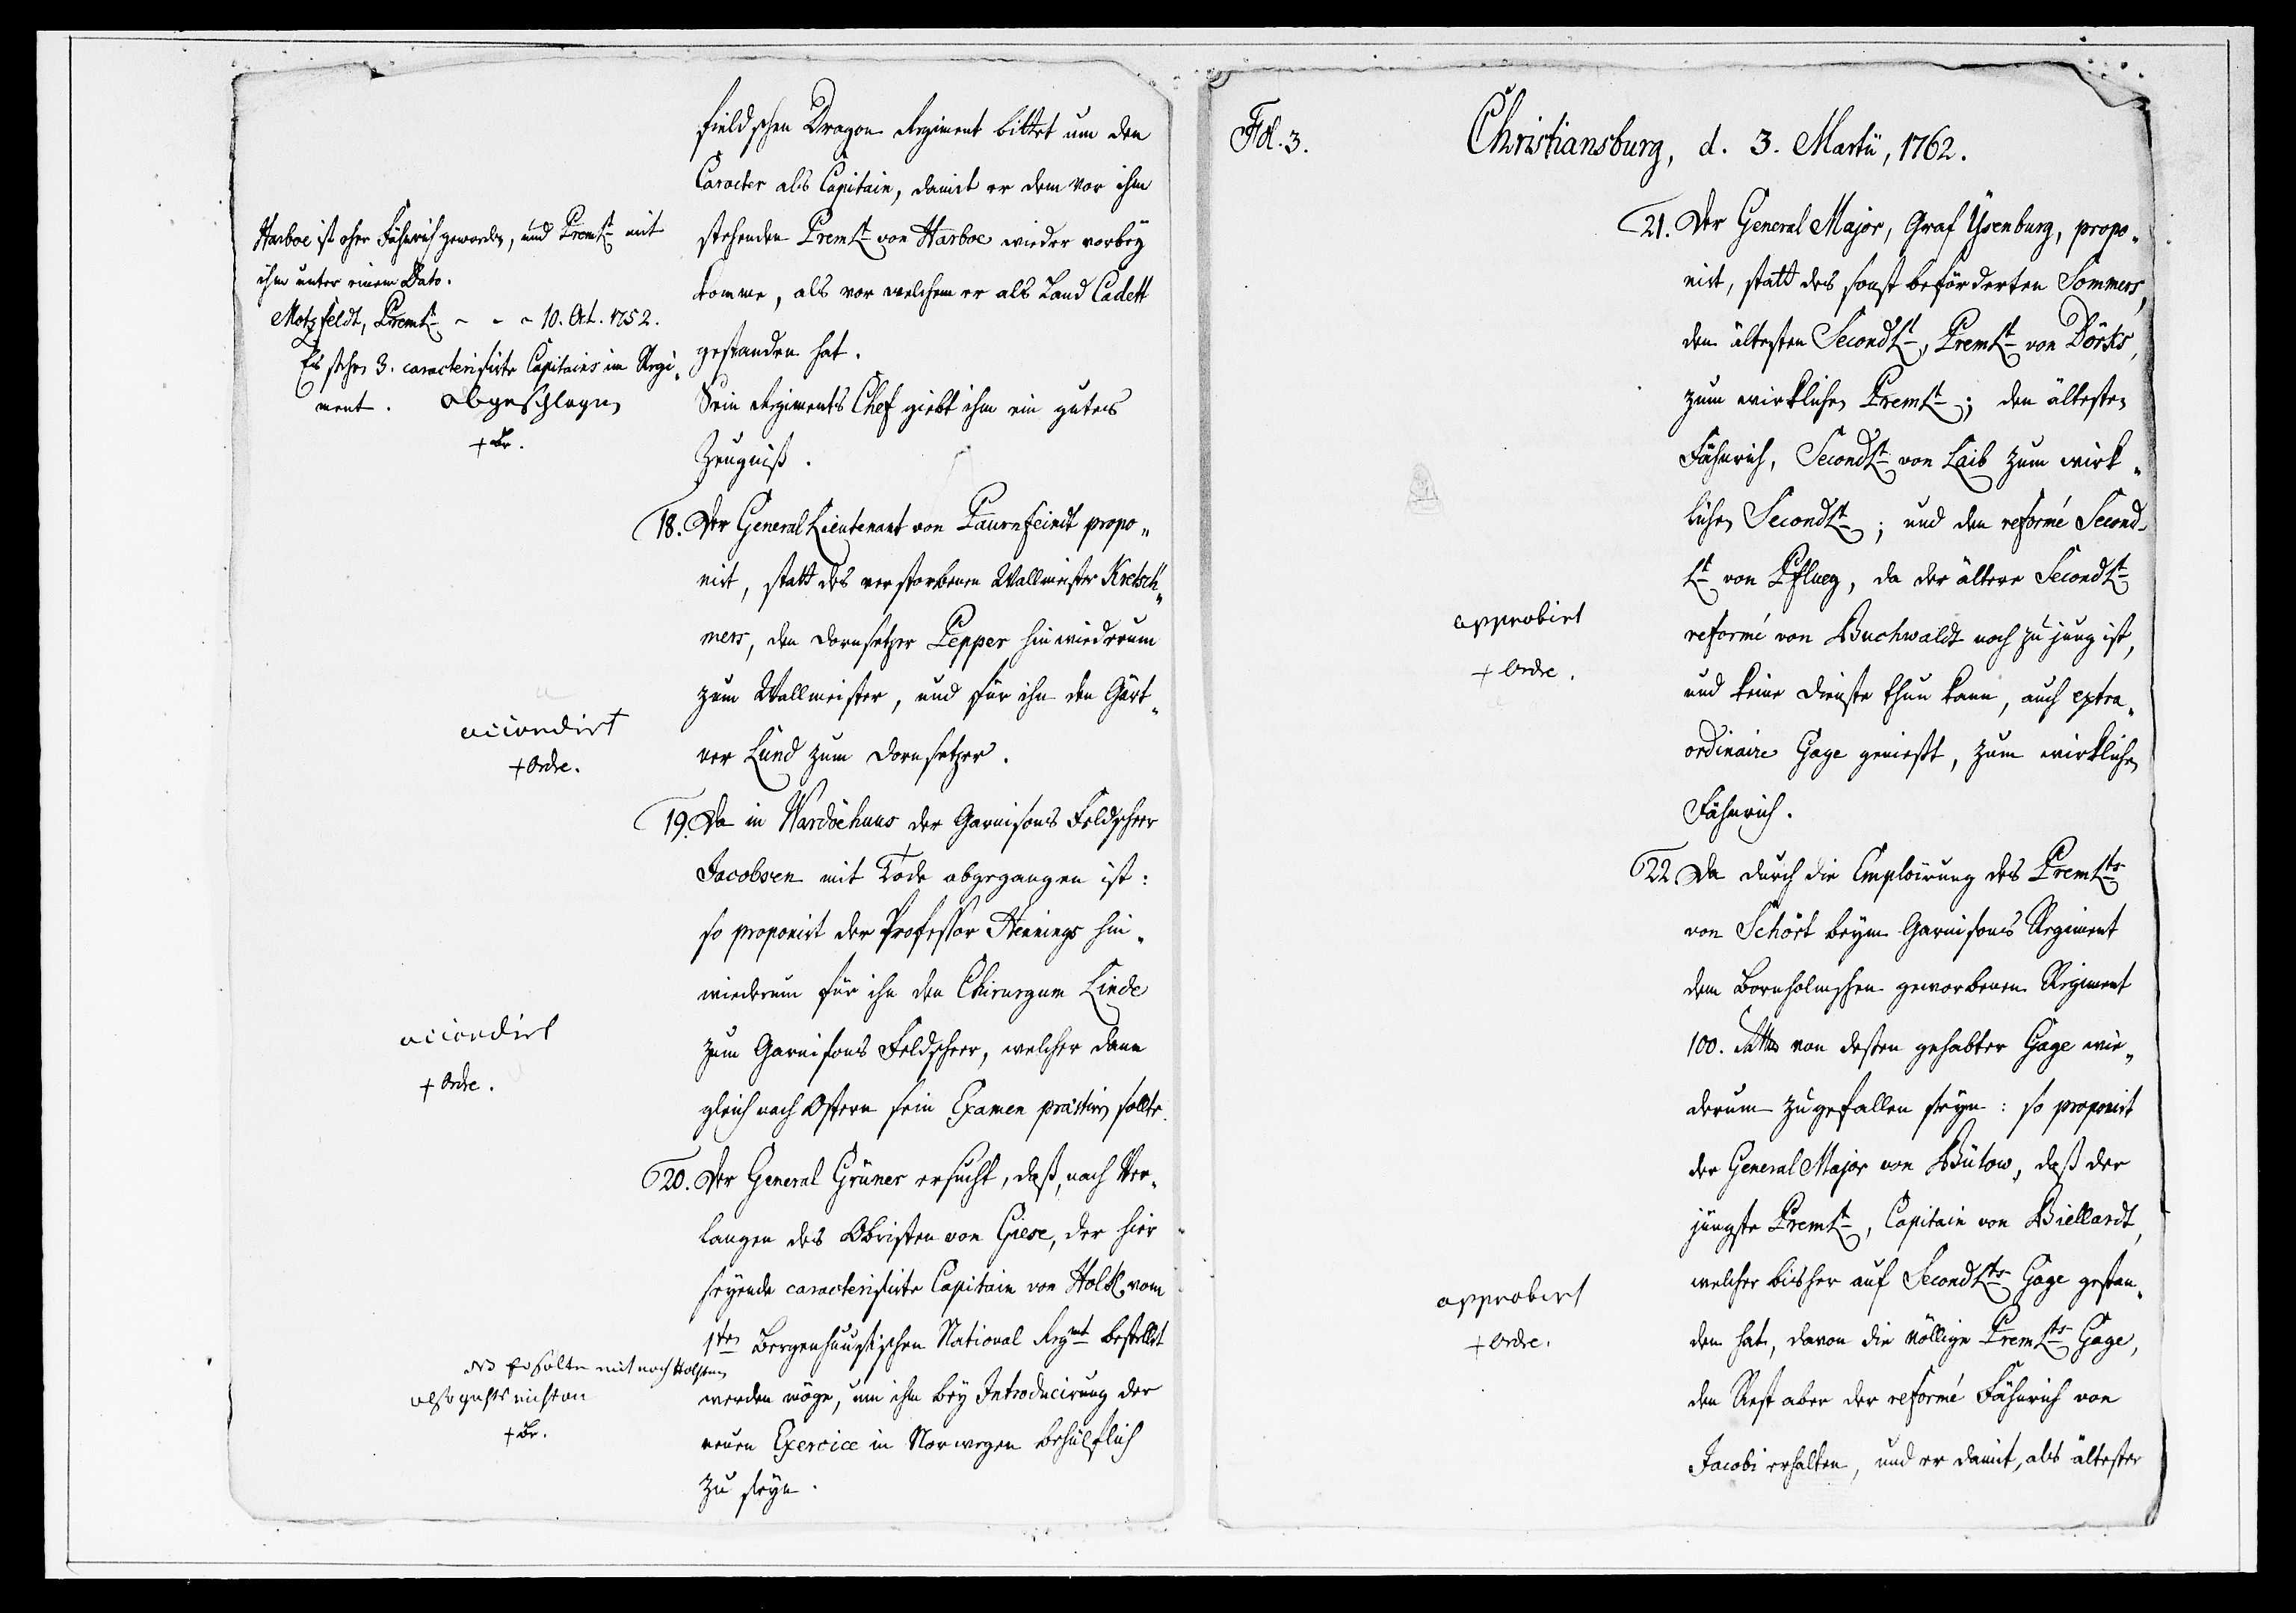 fieldschen Dragon Regiment bittet um den
Caracter als Capitain, damit er dem vor ihm
stehenden PremLt von Harboe wieder vorbey
komme, als vor welchem er als Land Cadett
gestanden hat.
Sein Regiments Chef giebt ihm ein gutes
Zeugniß.
Harboe ist eher Fähnrich geworden, und PremLt mit
ihm unter einem Dato.
Motzfeldt, PremLt - - - 10. Oct. 1752.
Es stehen 3. caracterisirte Capitains im Regi„
ment. abgeschlagen
+ Br.
18. Der General Lieutenant von Paurnfeindt propo„
nirt, statt des verstorbenen Wallmeister Kretsch„
mers, den Dornsetzer Pepper hinwiederum
zum Wallmeister, und für ihn den Gärt„
ner Lund zum Dornsetzer.
accordirt
+ Ordre.
19. Da in Wardöehuus der Garnisons Feldscheer
Jacobsen mit Tode abgegangen ist:
so proponirt der Professor Hennings hin„
wiederum für ihn den Chirurgum Linde
zum Garnisons Feldscheer, welcher dann
gleich nach Ostern sein Examen præstiren sollte.
accordirt
+ Ordre.
20. Der General Grüner ersucht, daß, nach Ver„
langen des Obristen von Giese, der hier
seyende caracterisirte Capitain von Holst, vom
1ten Bergenhuusischen National Regmt bestellet
werden möge, um ihm bey Introducirung der
neuen Exercice in Norwegen behülflich
zu seyn.
NB Er solte mit nach Holstein
also gehts nicht an
+ Br.
Fol. 3.
Christiansburg, d. 3. Martii, 1762.
21. Der General Major, Graf Ysenburg, propo„
nirt, statt des sonst beförderten Sommers,
den ältesten SecondLt, PremLt von Dörks,
zum wirklichen PremLt; den ältesten
Fähnrich, SecondLt von Laib zum wirk„
lichen SecondLt; und den reformé Second„
Lt von Pflueg, da der ältere SecondLt
reformé von Buchwaldt noch zu jung ist,
und keine Dienste thun kann, auch extra„
ordinaire Gage genießt, zum wirklichen
Fähnrich.
approbirt
+ Ordre.
22. Da durch die Emploirung des PremLts
von Schört beym Garnisons Regiment
dem Bornholmschen geworbenen Regiment
100. Rthlr von dessen gehabter Gage wie„
derum zugefallen seyn: so proponirt
der General Major von Bülow, daß der
jüngste PremLt, Capitain von Biellardt,
welcher bisher auf SecondLts Gage gestan„
den hat, davon die völlige PremLts Gage,
den Rest aber der reformé Fähnrich von
Jacobi erhalten, und er damit, als ältester
approbirt
+ Ordre.